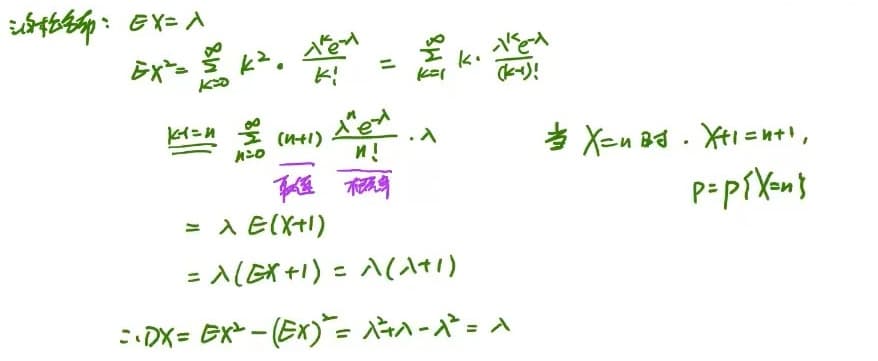 泊松分布： EX=λ
EX²=∑_{k=0}^{∞} k²·\frac{λ^k e^{-λ}}{k!} = ∑_{k=1}^{∞} k·\frac{λ^k e^{-λ}}{(k-1)!}
k-1=n ∑_{n=0}^{∞} (n+1) \frac{λ^n e^{-λ}}{n!}·λ
当 X=n 时. X+1=n+1,
取值 概率
P=P{X=n}
= λ E(X+1)
= λ(EX+1) = λ(λ+1)
∴DX= EX²-(EX)²= λ²+λ-λ² = λ